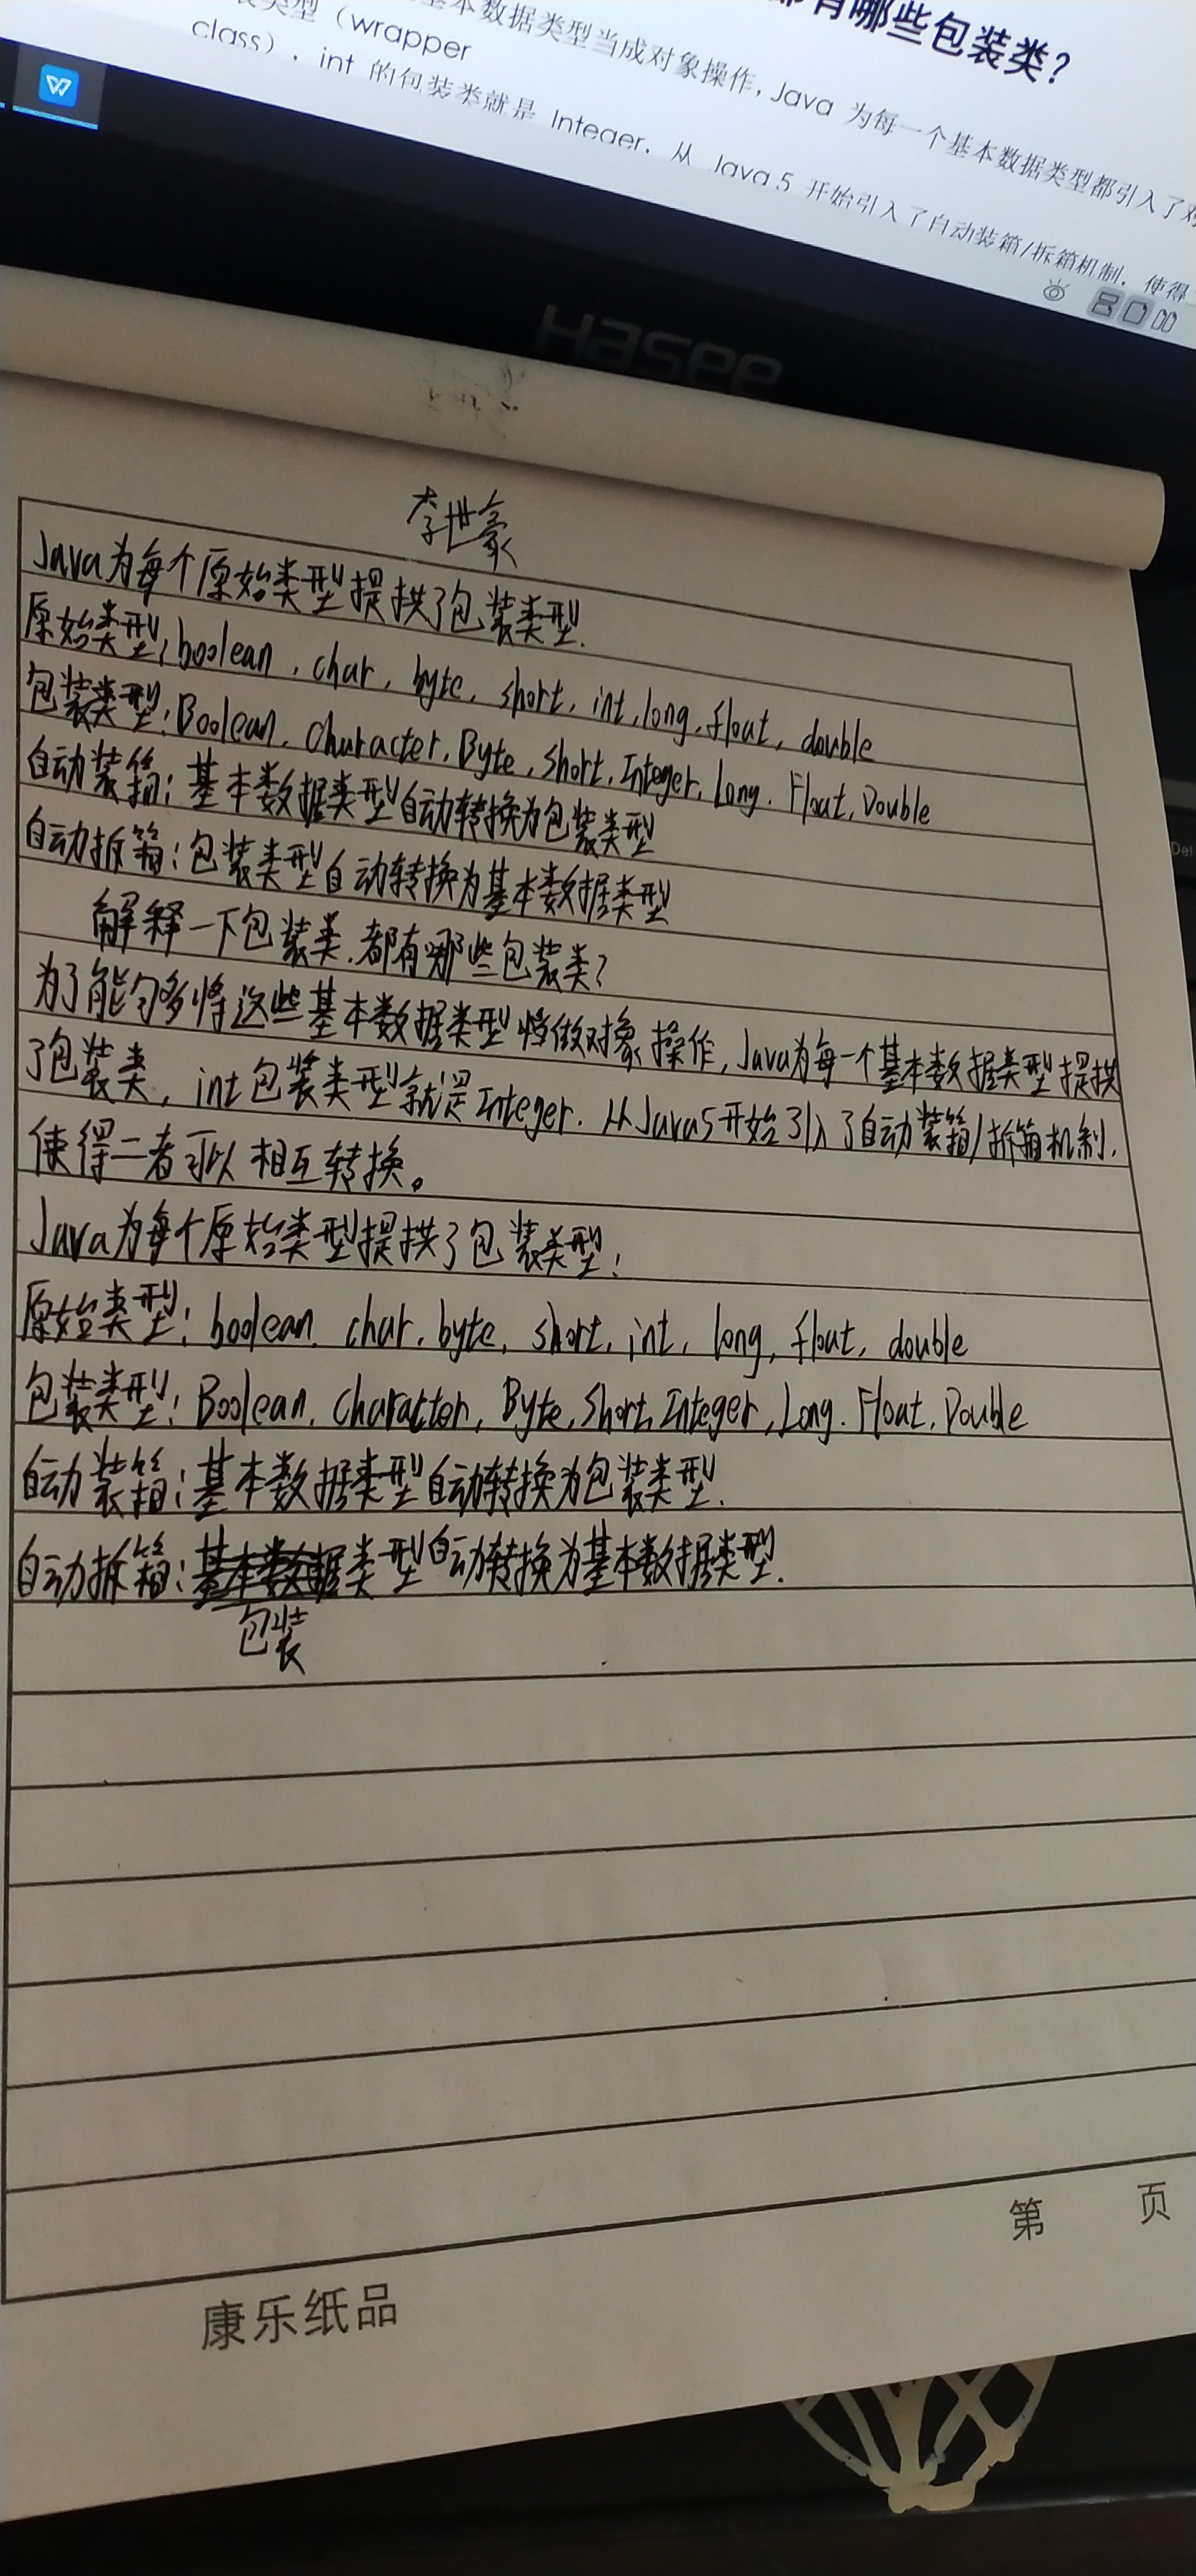 都有哪些包装类？
基本数据类型当成对象操作，Java 为每一个基本数据类型都引入了对
装类型（wrapper
class），int 的包装类就是 Integer，从 Java 5 开始引入了自动装箱/拆箱机制，使得
Hasee
Del
李世豪
Java为每个原始类型提拱了包装类型.
原始类型:boolean,char,byte,short,int,long,float,double
包装类型:Boolean,Character,Byte,Short,Integer,Long.Float,Double
自动装箱:基本数据类型自动转换为包装类型
自动拆箱:包装类型自动转换为基本数据类型
解释一下包装类.都有哪些包装类?
为了能够多将这些基本数据类型当做对象操作,Java为每一个基本数据类型提拱
了包装类,int包装类型就是Integer.从Java5开始引入了自动装箱/拆箱机制,
使得二者可以相互转换。
Java为每个原始类型提拱了包装类型:
原始类型:boolean.char.byte,short,int,long,float,double
包装类型:Boolean,Character,Byte,Short,Integer,Long.Float,Double
自动装箱:基本数据类型自动转换为包装类型.
自动拆箱:基本数据类型自动转换为基本数据类型.
包装
第 页
康乐纸品